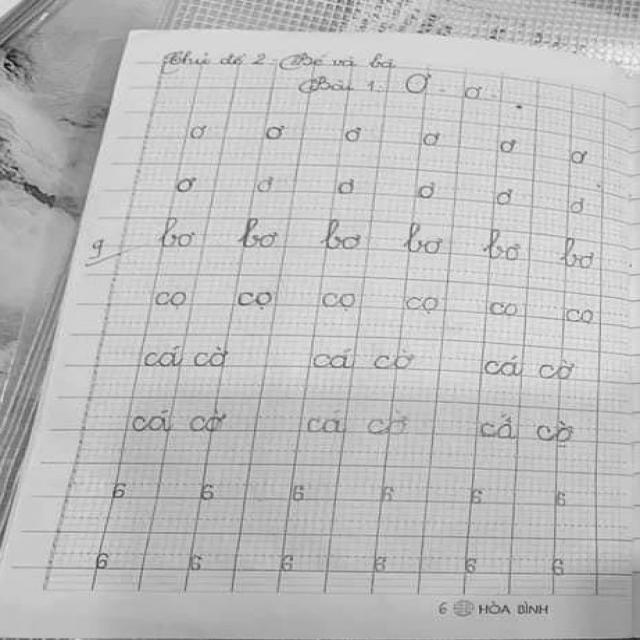 Chủ đề 2: Bé và bà
Bài 1: Ơ - ơ
ơ ơ ơ ơ ơ ơ
ơ ơ ơ ơ ơ ơ
9 bơ bơ bơ bơ bơ bơ
cọ cọ cọ cọ cọ cọ
cá cờ cá cờ cá cờ
cá cờ cá cờ cá cờ
6 6 6 6 6 6
6 6 6 6 6 6
6 HÒA BÌNH